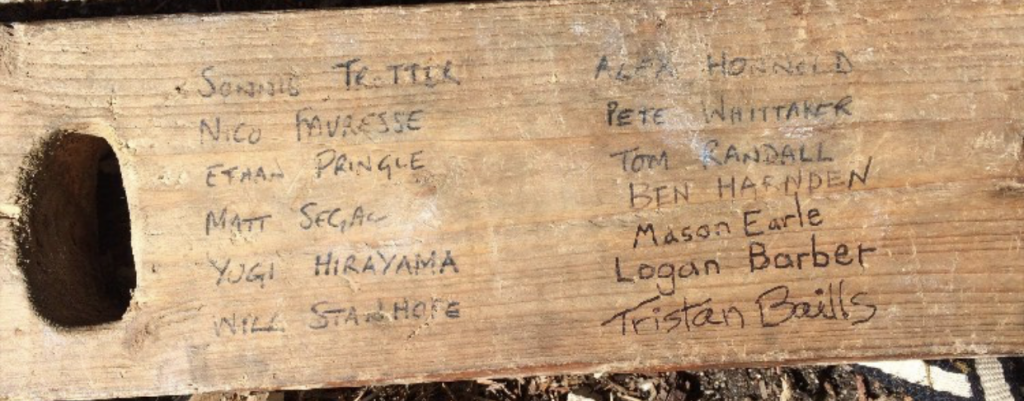 SONNIE TROTTER
NICO FAVRESSE
ETHAN PRINGLE
MATT SEGAL
YUGI HIRAYAMA
WILL STANHOPE
ALEX HONNOLD
PETE WHITTAKER
TOM RANDALL
BEN HARNDEN
Mason Earle
Logan Barber
Tristan Baills